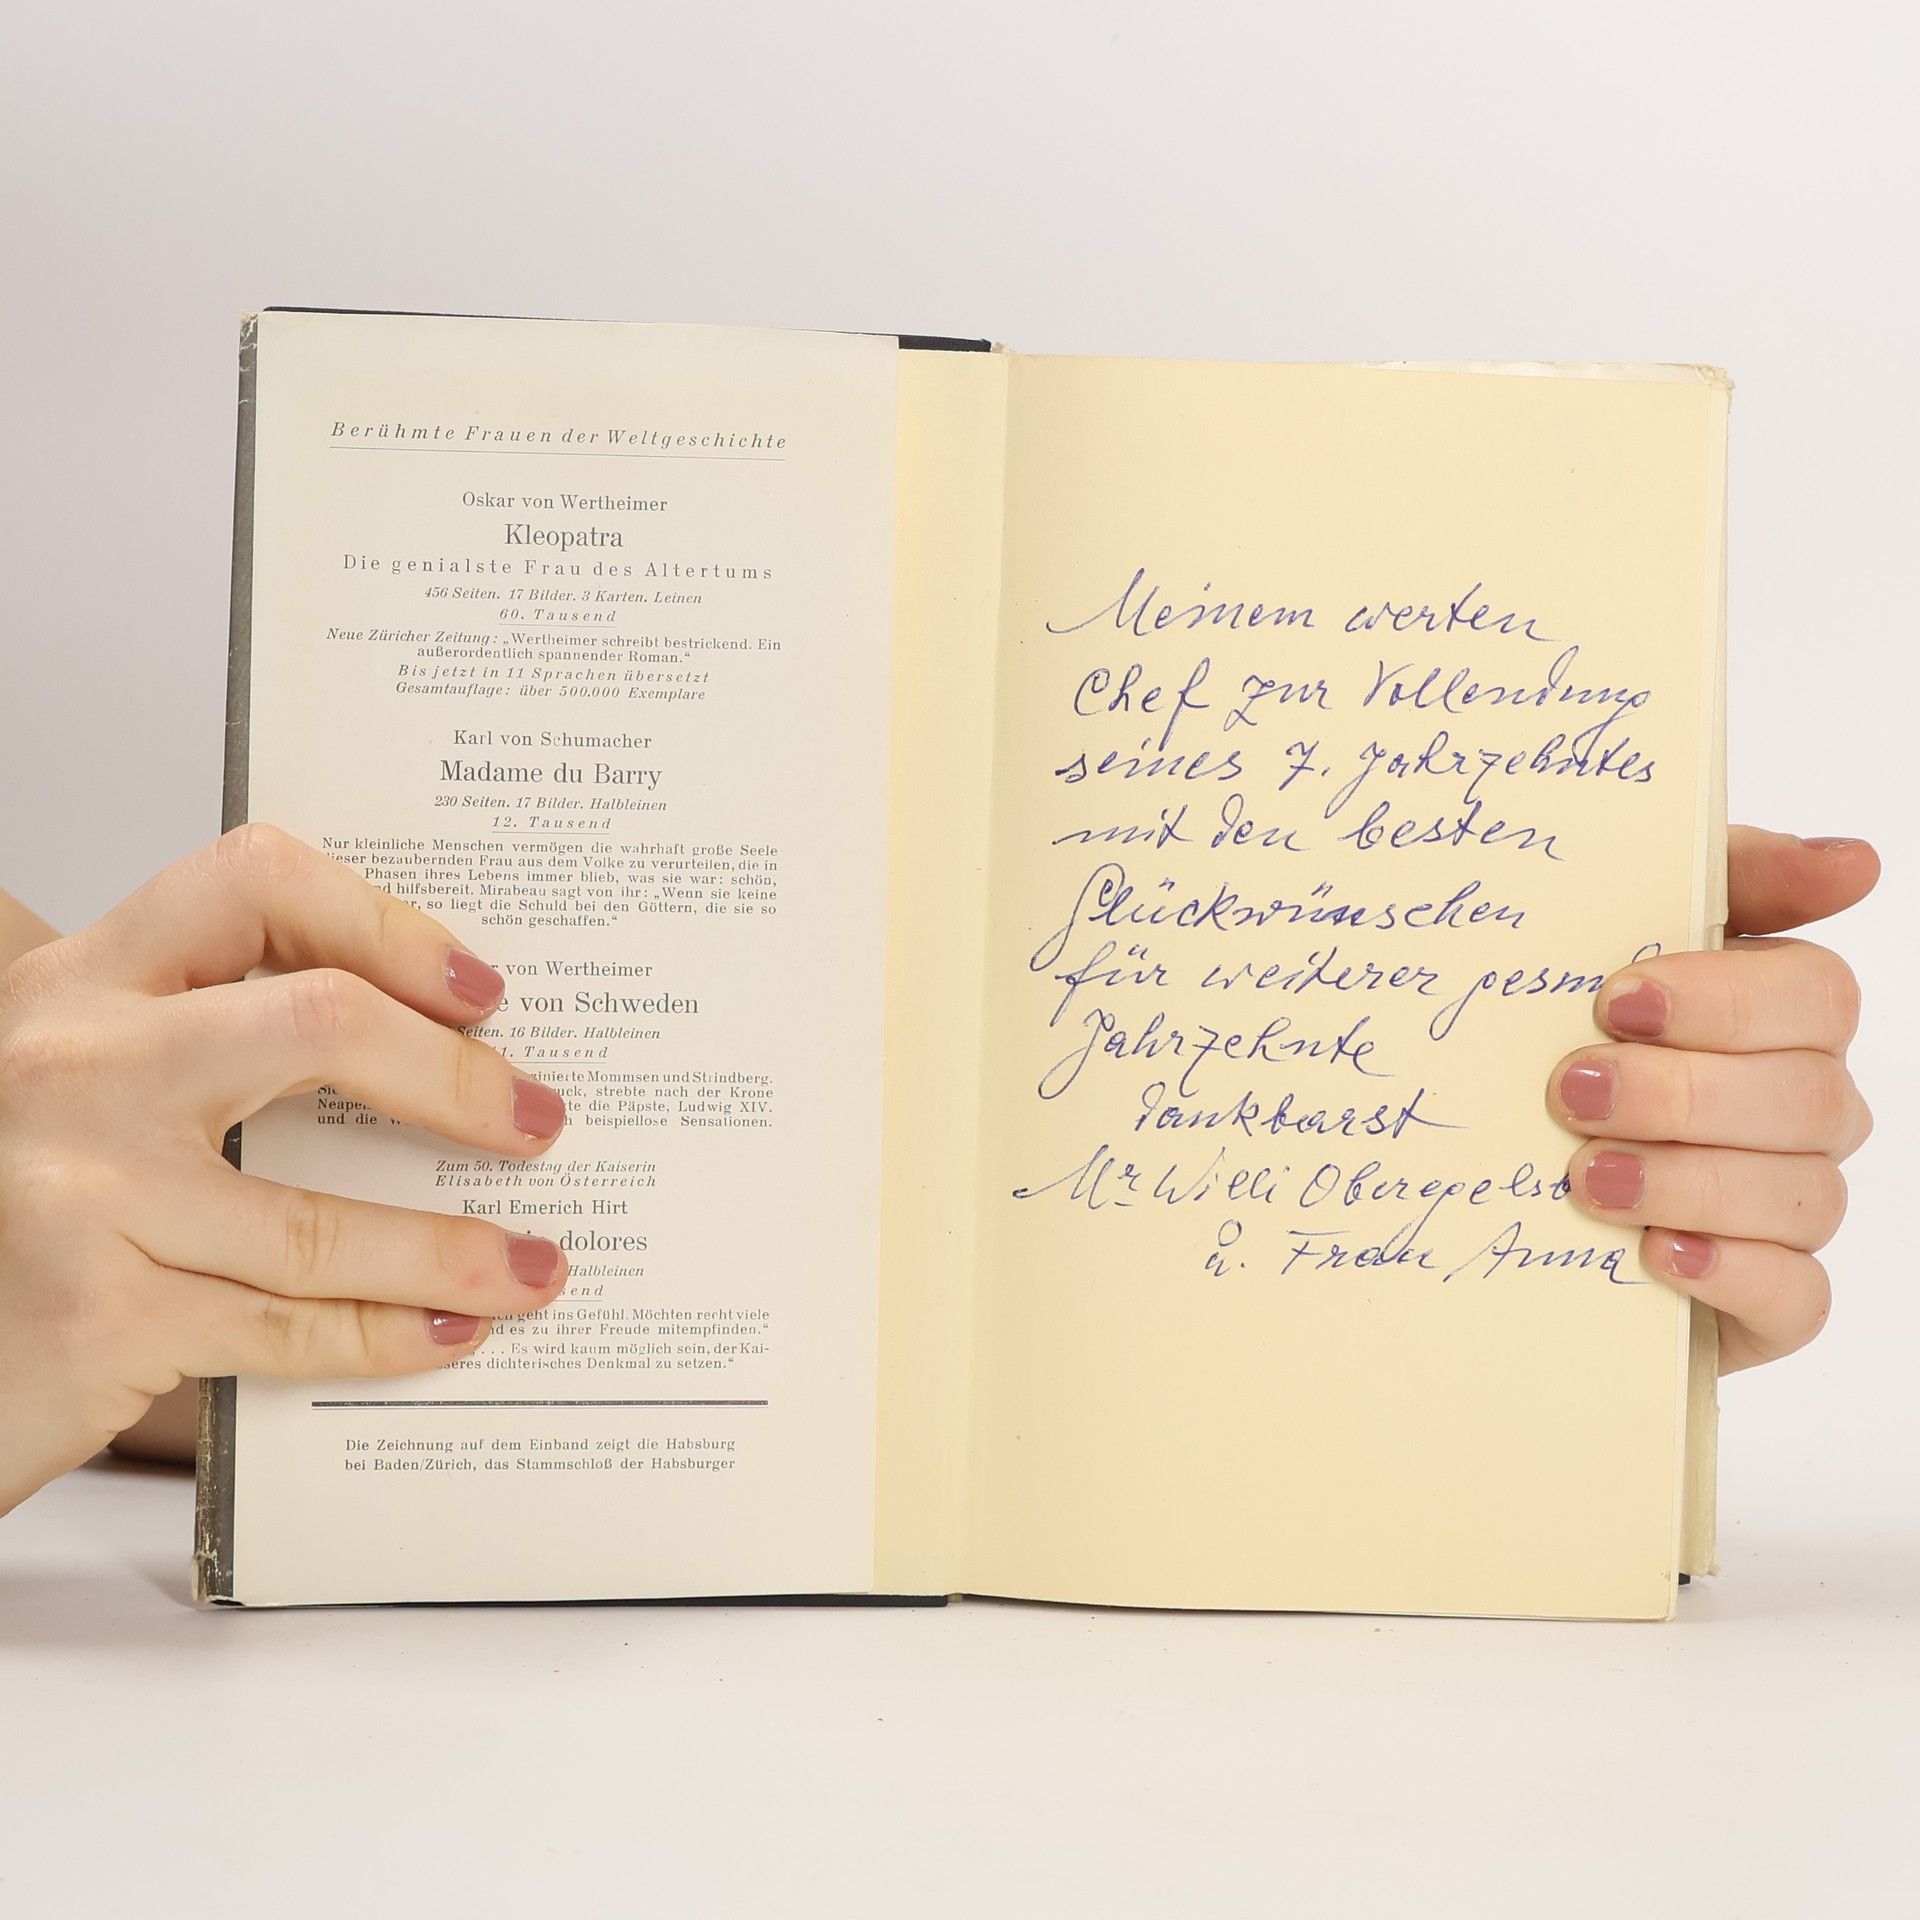 Berühmte Frauen der Weltgeschichte
Oskar von Wertheimer
Kleopatra
Die genialste Frau des Altertums
456 Seiten. 17 Bilder. 3 Karten. Leinen
60. Tausend
Neue Züricher Zeitung: „Wertheimer schreibt bestrickend. Ein
außerordentlich spannender Roman.“
Bis jetzt in 11 Sprachen übersetzt
Gesamtauflage: über 500.000 Exemplare
Karl von Schumacher
Madame du Barry
230 Seiten. 17 Bilder. Halbleinen
12. Tausend
Nur kleinliche Menschen vermögen die wahrhaft große Seele
dieser bezaubernden Frau aus dem Volke zu verurteilen, die in
Phasen ihres Lebens immer blieb, was sie war: schön,
hilfsbereit. Mirabeau sagt von ihr: „Wenn sie keine
so liegt die Schuld bei den Göttern, die sie so
schön geschaffen.“
von Wertheimer
von Schweden
Seiten. 16 Bilder. Halbleinen
Tausend
Mommsen und Strindberg.
strebte nach der Krone
die Päpste, Ludwig XIV.
und die beispiellose Sensationen.
Zum 50. Todestag der Kaiserin
Elisabeth von Österreich
Karl Emerich Hirt
dolores
Halbleinen
geht ins Gefühl. Möchten recht viele
es zu ihrer Freude mitempfinden.“
... Es wird kaum möglich sein, der Kai-
dichterisches Denkmal zu setzen.“
Die Zeichnung auf dem Einband zeigt die Habsburg
bei Baden/Zürich, das Stammschloß der Habsburger
Meinem werten
Chef zur Vollendung
seines 7. Jahrzehntes
mit den besten
Glückwünschen
für weiterer
Jahrzehnte
dankbarst
Mr Willi
u. Frau Anna